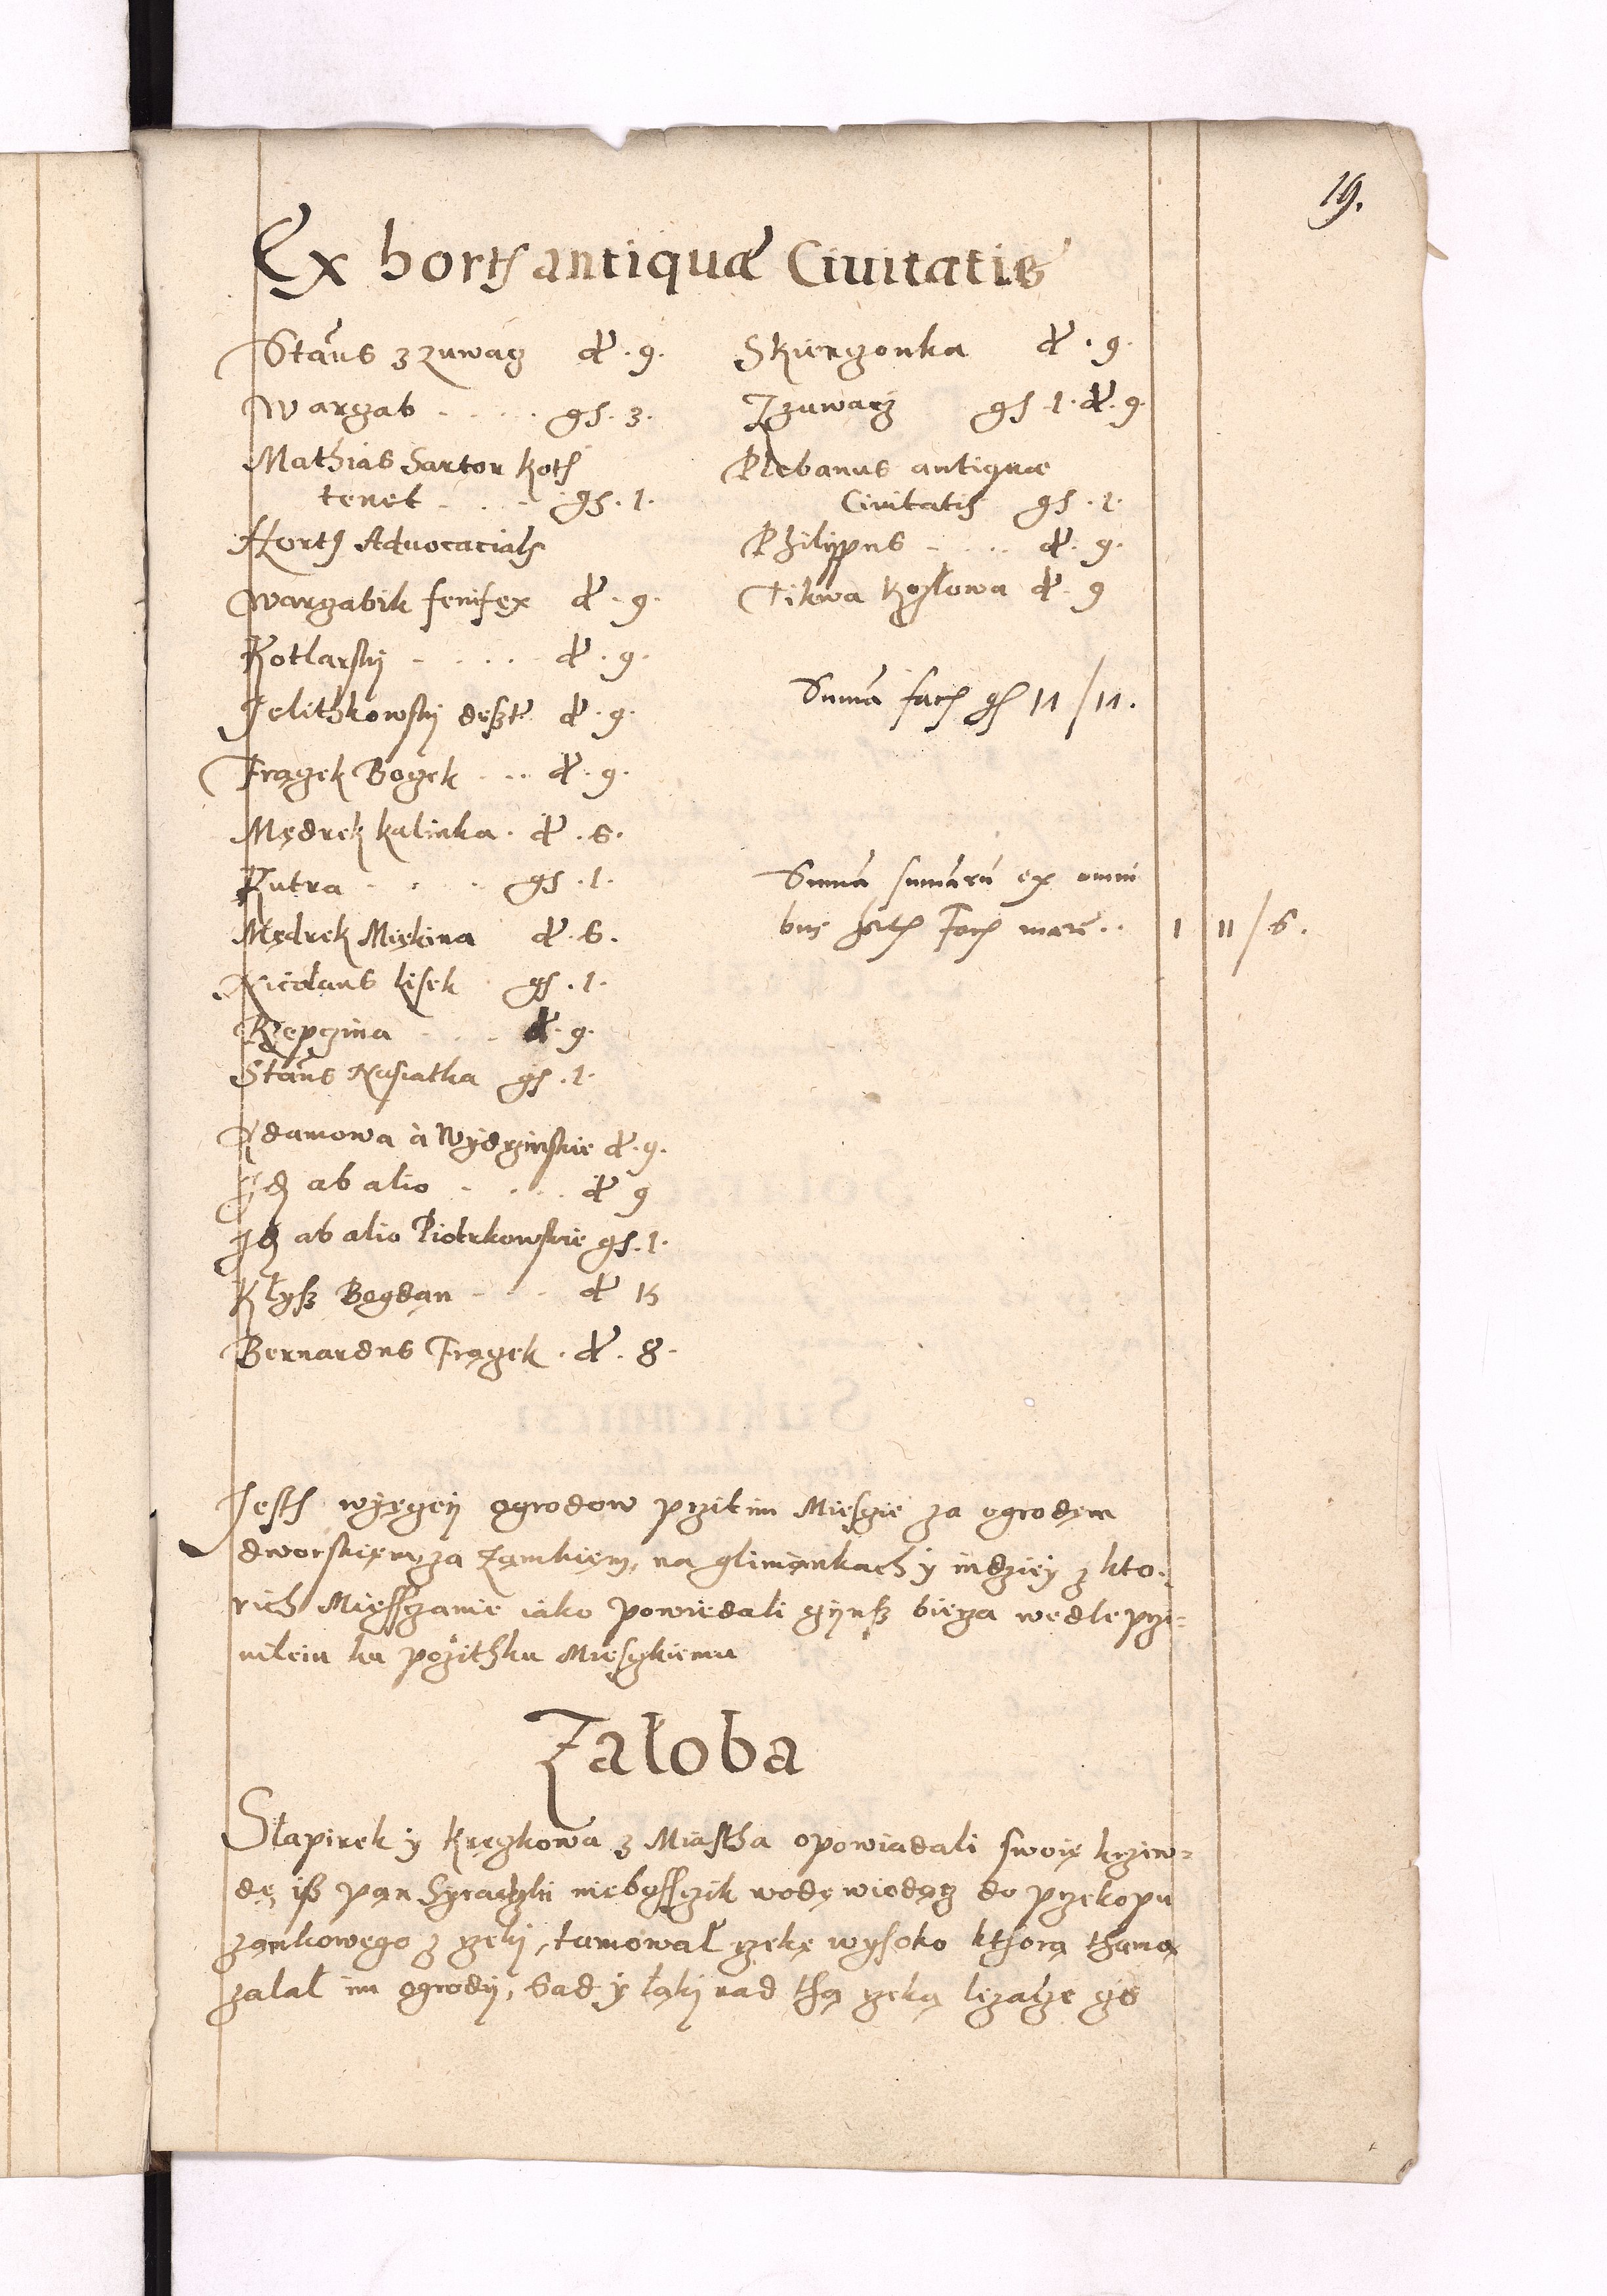 19.
Ex hortis antiquæ Ciuitatis
Staus z zuwacz d. 9.
Wargab . . . . gs. 3.
Mathias Sartor Kots
tenet . . . gs. 1.
Hortus Aduocacialis
Wargabik fenifex d. 9.
Kotlarsky . . . . d. 9.
Jelithkowsky d. 9.
Fraczek Boczek . . d. 9.
Mędrek kalinka . d. 6.
Kutra . . . gs. 1.
Mędrek Miękina d. 6.
Nicolaus lisek gs. 1.
Rzepczina . . . d. 9.
Staus Nasiatka gs. 1.
Adamowa à Wydrzinskie d. 9.
Id ab alio . . . . d 9
Id ab alio Piotrkowskie gs. 1.
Kłysz Bogdan . . . d 15
Bernardus Fraczek . d. 8.
Skierczonka d. 9.
Izuwacz gs. 1. d. 9.
Plebanus antiquæ
Ciuitatis gs. 1.
Philippus . . . . d. 9.
Tikwa Kozłowa d. 9
Suma facit gs 11/11.
Suma sumaru ex omni
bus hortis facit marc . . 1 11/6.
Jesth wyęczey ogrodow przitim Miesczie za ogrodem
dworskięm za Zamkięm, na glimiankach y indziey z kto-
rich Mięssczanie iako powiedali czynsz biega wedle przi-
uileiu ku pozithku Miesczkiemu
Załoba
Słapirek y Kręczkowa z Miastha opowiadali swoię krziw-
dę, isz pan Syradzki niebosszczik wodę wiodącz do przekopu
zamkowego z rzeki, tamował rzekę wysoko kthorą thamą
zalał im ogrody, Sad y łąki nad thą rzeką lezącze